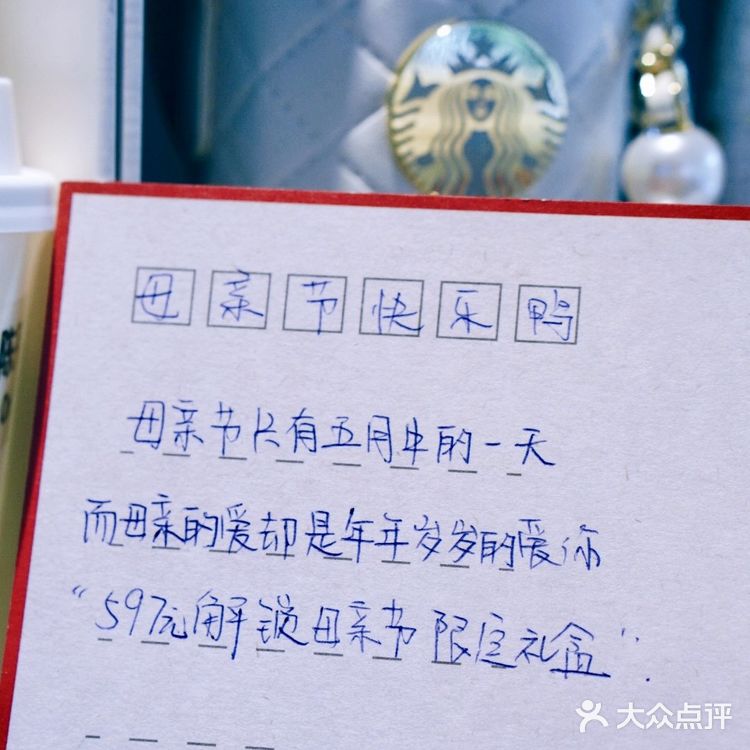 母亲节快乐鸭
母亲节只有五月中的一天
而母亲的爱却是年年岁岁的爱你
“597元解锁母亲节限定礼盒”.
大众点评